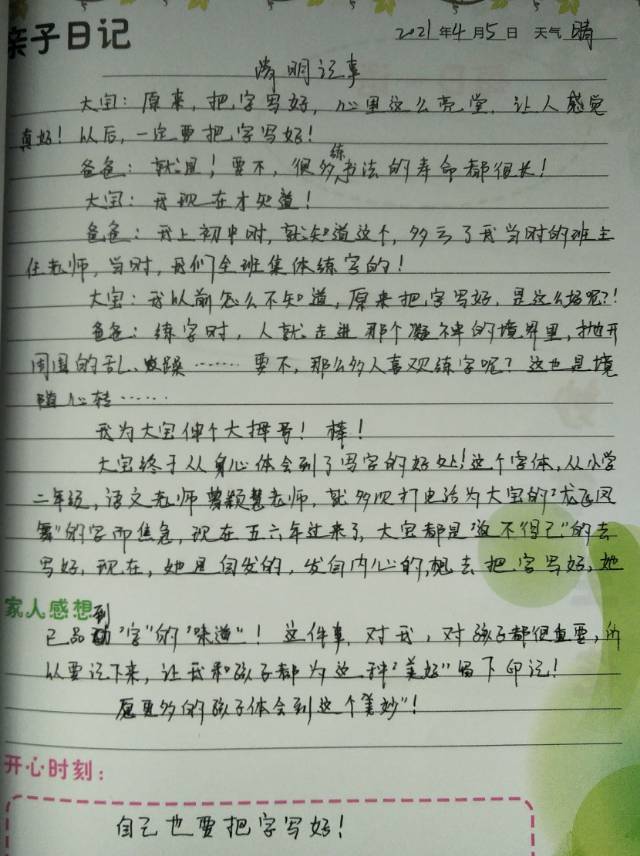 亲子日记
2021年4月5日 天气 晴
清明记事
大宝：原来，把字写好，心里这么亮堂，让人感觉
真好！以后，一定要把字写好！
爸爸：就是！要不，很多练书法的寿命都很长！
大宝：我现在才知道！
爸爸：我上初中时，就知道这个，多亏了我当时的班主
任老师，当时，我们全班集体练字的！
大宝：我以前怎么不知道，原来把字写好，是这么好呢？！
爸爸：练字时，人就走进那个凝神的境界里，抛开
周围的乱、嘈躁……要不，那么多人喜欢练字呢？这也是境
随心转……
我为大宝伸个大拇哥！棒！
大宝终于从身心体会到了写字的好处！这个字体，从小学
二年级，语文老师老师，就多次打电话为大宝的"龙飞凤
舞"的字而焦急，现在五六年过来了，大宝都是"迫不得已"的去
写好，现在，她是自发的，发自内心的，想去把字写好，她
家人感想
已品到"字"的"味道"！这件事，对我，对孩子都很重要，所
以要记下来，让我和孩子都为这种"美好"留下印记！
愿更多的孩子体会到这个"美妙"！
开心时刻：
自己也要把字写好！